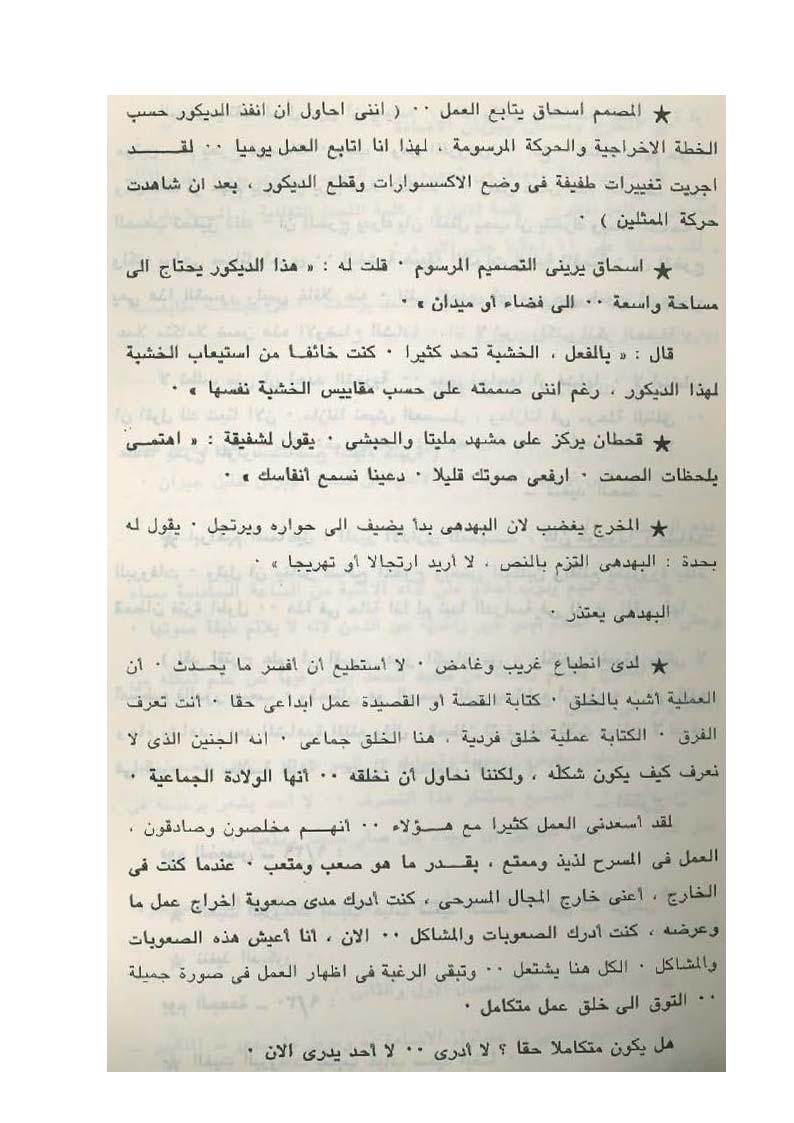 ★ المصمم اسحاق يتابع العمل ٠٠ ( اننى احاول ان انفذ الديكور حسب
الخطة الاخراجية والحركة المرسومة ، لهذا انا اتابع العمل يوميا ٠٠ لقـــد
اجريت تغييرات طفيفة فى وضع الاكسسوارات وقطع الديكور ، بعد ان شاهدت
حركة الممثلين ) ٠
★ اسحاق يرينى التصميم المرسوم ٠ قلت له : « هذا الديكور يحتاج الى
مساحة واسعة ٠٠ الى فضاء أو ميدان » ٠
قال : « بالفعل ، الخشبة تحد كثيرا ٠ كنت خائفـا من استيعاب الخشبة
لهذا الديكور ، رغم اننى صممته على حسب مقاييس الخشبة نفسها » ٠
★ قحطان يركز على مشهد مليتا والحبشى ٠ يقول لشفيقة : « اهتمـى
بلحظات الصمت ٠ ارفعى صوتك قليلا ٠ دعينا نسمع أنفاسك » ٠
★ المخرج يغضب لان البهدهى بدأ يضيف الى حواره ويرتجل ٠ يقول له
بحدة : البهدهى التزم بالنص ، لا أريد ارتجالا أو تهريجا » ٠
البهدهى يعتذر ٠
★ لدى انطباع غريب وغامض ٠ لا أستطيع أن أفسر ما يحدث ٠ أن
العملية أشبه بالخلق ٠ كتابة القصة أو القصيدة عمل ابداعى حقا ٠ أنت تعرف
الفرق ٠ الكتابة عملية خلق فردية ، هنا الخلق جماعى ٠ انه الجنين الذى لا
نعرف كيف يكون شكله ، ولكننا نحاول أن نخلقه ٠٠ أنها الولادة الجماعية ٠
لقد أسعدنى العمل كثيرا مع هـــؤلاء ٠٠ أنهــم مخلصون وصادقون ،
العمل فى المسرح لذيذ وممتع ، بقــدر ما هو صعب ومتعب ٠ عندما كنت فى
الخارج ، أعنى خارج المجال المسرحى ، كنت أدرك مدى صعوبة اخراج عمل ما
وعرضه ، كنت أدرك الصعوبات والمشاكل ٠٠ الان ، أنا أعيش هذه الصعوبات
والمشاكل ٠ الكل هنا يشتعل ٠٠ وتبقى الرغبة فى اظهار العمل فى صورة جميلة
٠٠ التوق الى خلق عمل متكامل ٠
هل يكون متكاملا حقا ؟ لا أدرى ٠٠ لا أحد يدرى الان ٠